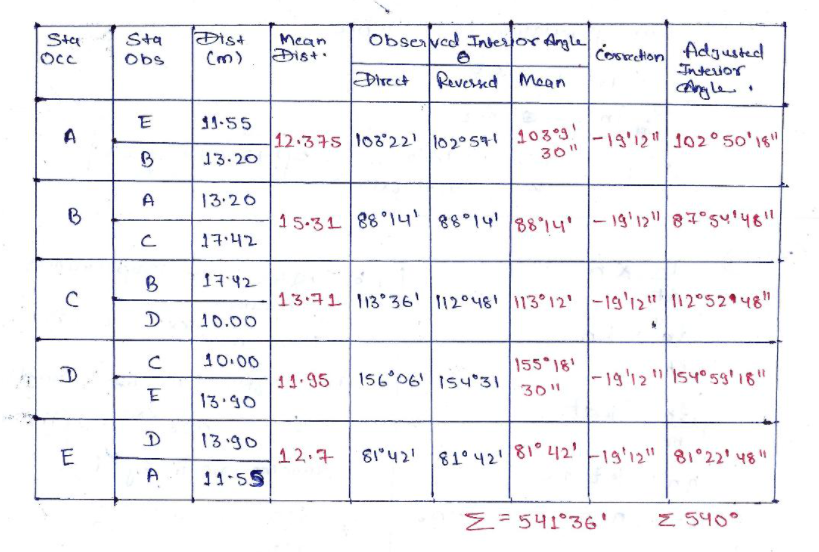 Sta Occ | Sta Obs | Dist (m) | Mean Dist. | Observed Interior Angle θ | Correction | Adjusted Interior Angle.
Direct | Reversed | Mean
A | E | 11.55 | 12.375 | 103°22' | 102°57' | 103°9' 30" | -19'12" | 102°50'18"
B | 13.20
B | A | 13.20 | 15.31 | 88°14' | 88°14' | 88°14' | -19'12" | 87°54'48"
C | 17.42
C | B | 17.42 | 13.71 | 113°36' | 112°48' | 113°12' | -19'12" | 112°52'48"
D | 10.00
D | C | 10.00 | 11.95 | 156°06' | 154°31 | 155°18' 30" | -19'12" | 154°59'18"
E | 13.90
E | D | 13.90 | 12.7 | 81°42' | 81°42' | 81°42' | -19'12" | 81°22'48"
A | 11.55
Σ = 541°36' Σ 540°